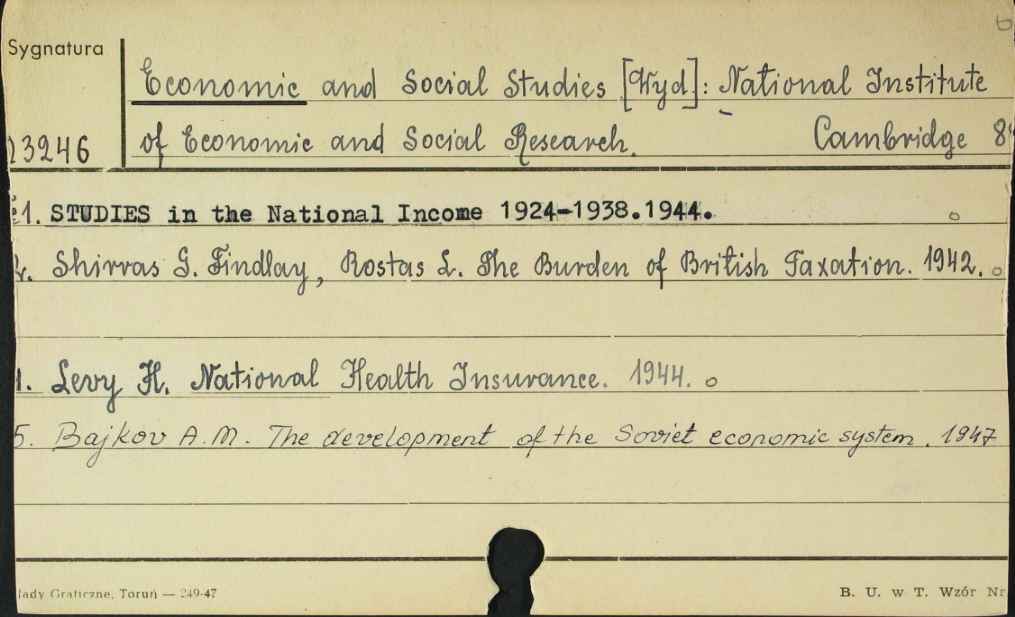 6
Sygnatura
Economic and Social Studies [Wyd]: National Institute
23246 of Economic and Social Research. Cambridge 8°
1. STUDIES in the National Income 1924-1938.1944. o
Shirras G. Findlay, Rostas L. The Burden of British Taxation. 1942. o
Levy H. National Health Insurance. 1944. o
5. Bajkov A.M. The development of the Soviet economic system. 1947
łady Graficzne, Toruń — 249-47 B. U. w T. Wzór Nr